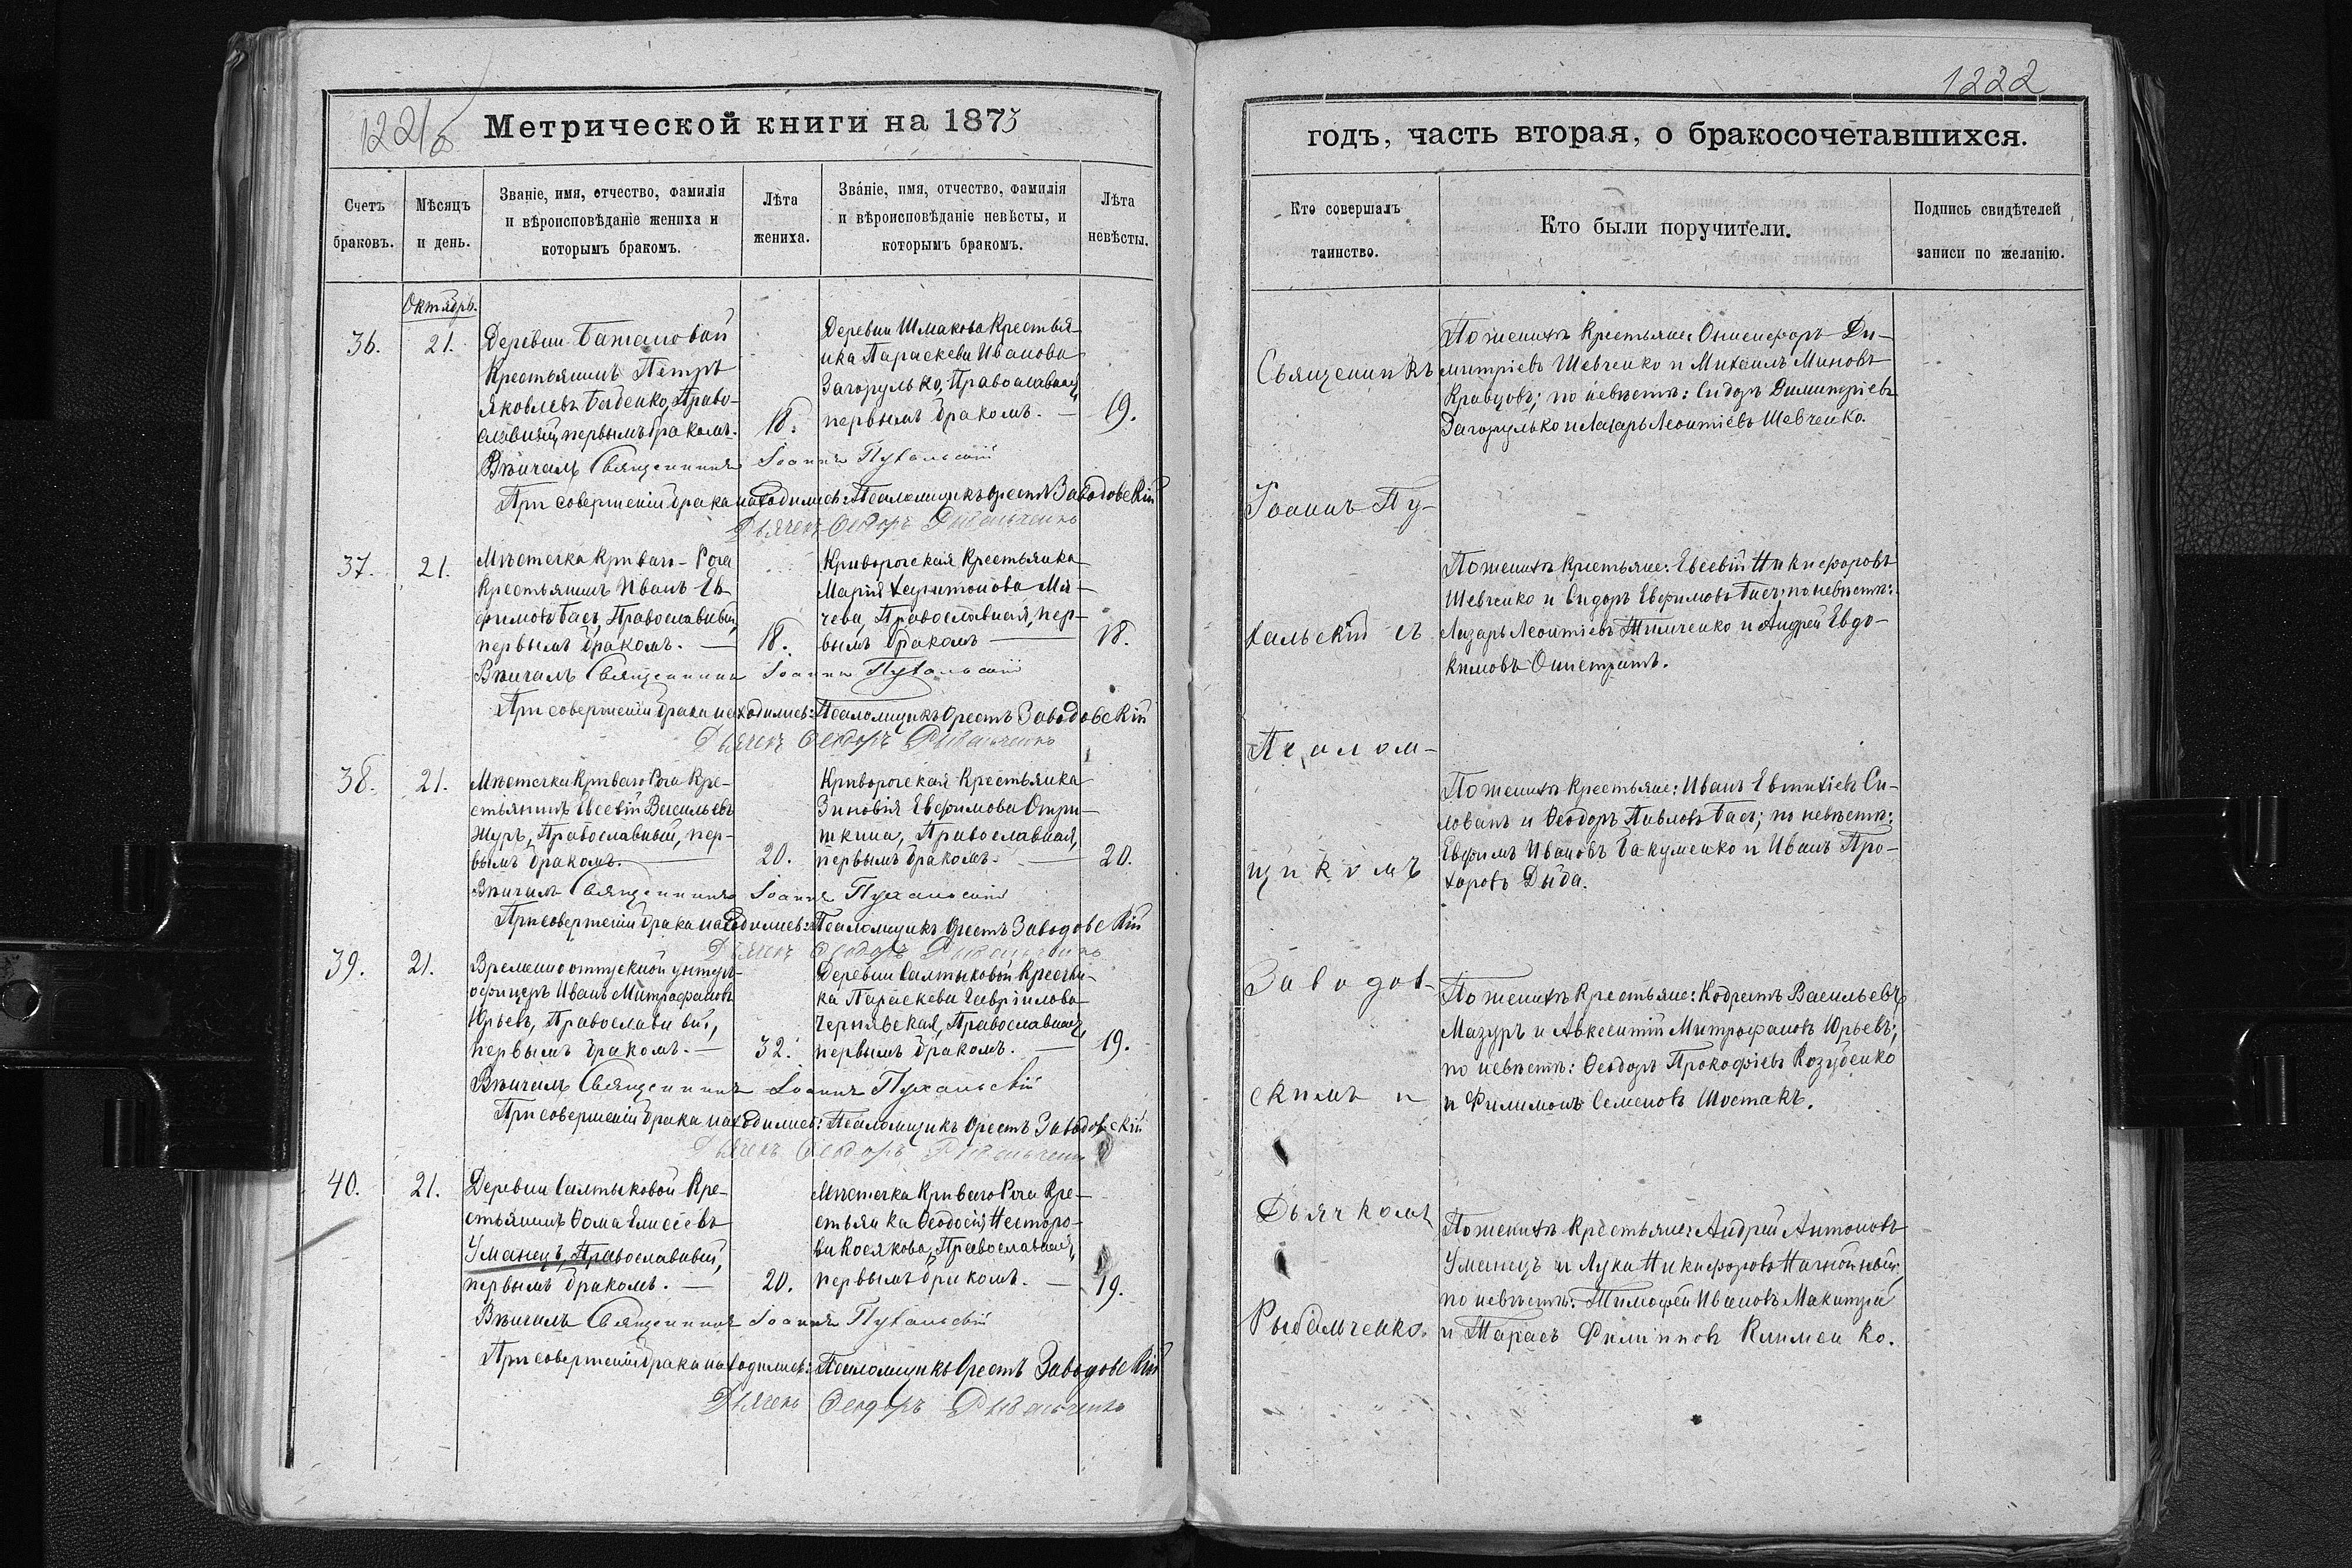 1221 об
Метрической книги на 1875
Счетъ браковъ.
Мѣсяцъ и день.
Званіе, имя, отчество, фамилія
и вѣроисповѣданіе жениха и
которымъ бракомъ.
Лѣта жениха.
Званіе, имя, отчество, фамилія
и вѣроисповѣданіе невѣсты, и
которымъ бракомъ.
Лѣта невѣсты.
Октябрь.
36.
21.
Деревни Баташовой
Крестьянинъ Петръ
Яковлевъ Право-
славный, первымъ бракомъ.
18.
Деревни Шмакова Крестья-
нка Параскева Иванова
Загорулько, Православная,
первымъ бракомъ.
19.
Вѣнчалъ Священникъ Іоаннъ Пухальскій
При совершеніи брака находились: Псаломщикъ Орестъ Заводовскій
Дьячекъ Ѳеодоръ Рыбальченко
37.
21.
Мѣстечка Криваго-Рога
Крестьянинъ Иванъ Ев-
фимовъ Басъ, Православный,
первымъ бракомъ.
18.
Криворогская Крестьянка
Марія Харитонова Мя-
чева, Православная, пер-
вымъ бракомъ
18.
Вѣнчалъ Священникъ Іоаннъ Пухальскій
При совершеніи брака находились: Псаломщикъ Орестъ Заводовскій
Дьячекъ Ѳеодоръ Рыбальченко
38.
21.
Мѣстечка Криваго Рога Кре-
стьянинъ Евсевій Васильевъ
Журъ, Православный, пер-
вымъ бракомъ.
20.
Криворогская Крестьянка
Зиновія Евфимова
Православная,
первымъ бракомъ.
20.
Вѣнчалъ Священникъ Іоаннъ Пухальскій
При совершеніи брака находились: Псаломщикъ Орестъ Заводовскій
Дьячекъ Ѳеодоръ Рыбальченко
39.
21.
Временно отпускной унтеръ-
офицеръ Иванъ Митрофановъ
Юрьевъ, Православный,
первымъ бракомъ.
32.
Деревни Салтыковой Крестьян-
ка Параскева Гавріилова
Чернявская, Православная,
первымъ бракомъ.
19.
Вѣнчалъ Священникъ Іоаннъ Пухальскій
При совершеніи брака находились: Псаломщикъ Орестъ Заводовскій
Дьячекъ Ѳеодоръ Рыбальченко
40.
21.
Деревни Салтыковой Кре-
стьянинъ Ѳома Елисеевъ
Уманецъ, Православный,
первымъ бракомъ.
20.
Мѣстечка Криваго Рога Кре-
стьянка Ѳеодосія Несторо-
ва Косякова, Православная,
первымъ бракомъ.
19.
Вѣнчалъ Священникъ Іоаннъ Пухальскій
При совершеніи брака находились: Псаломщикъ Орестъ Заводовскій
Дьячекъ Ѳеодоръ Рыбальченко
1222
годъ, часть вторая, о бракосочетавшихся.
Кто совершалъ таинство.
Кто были поручители.
Подпись свидѣтелей записи по желанію.
Священникъ
Іоаннъ Пу-
хальскій съ
Псалом-
щикомъ
Заводов-
скимъ и
Дьячкомъ
Рыбальченко.
По женихѣ Крестьяне: Онисифоръ Ди-
митріевъ Шевченко и Михаилъ Миновъ
Кравцовъ; по невѣстѣ: Сидоръ Димитріевъ
Загорулько и Лазарь Леонтіевъ Шевченко.
По женихѣ Крестьяне: Евсевій Никифоровъ
Шевченко и Сидоръ Евфимовъ Басъ; по невѣстѣ:
Лазарь Леонтіевъ Тимченко и Андрей Евдо-
кимовъ
По женихѣ Крестьяне: Иванъ Евтихіевъ Си-
лованъ и Ѳеодоръ Павловъ Басъ; по невѣстѣ:
Евфимъ Ивановъ Бакуменко и Иванъ Про-
хоровъ Дыба.
По женихѣ Крестьяне: Кодратъ Васильевъ
Мазуръ и Авксентій Митрофановъ Юрьевъ;
по невѣстѣ: Ѳеодоръ Прокофіевъ Козубенко
и Филимонъ Семеновъ Шостакъ.
По женихѣ Крестьяне: Андрей Антоновъ
Уманецъ и Лука Никифоровъ Нагнойный;
по невѣстѣ: Тимофей Ивановъ Макитра
и Тарасъ Филиповъ Клименко.